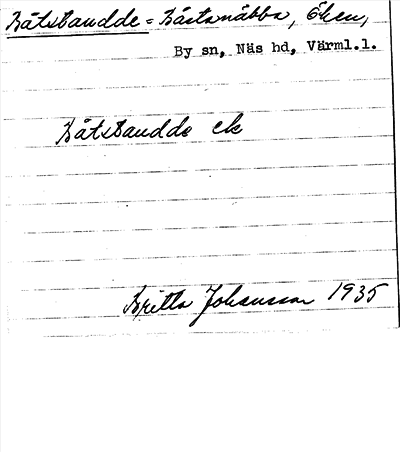 Båtsbaudde = Båstanäbba, Öken,
By sn, Näs hd, Värml.l.
Båtsbaudde ek
Britta Johansson 1935